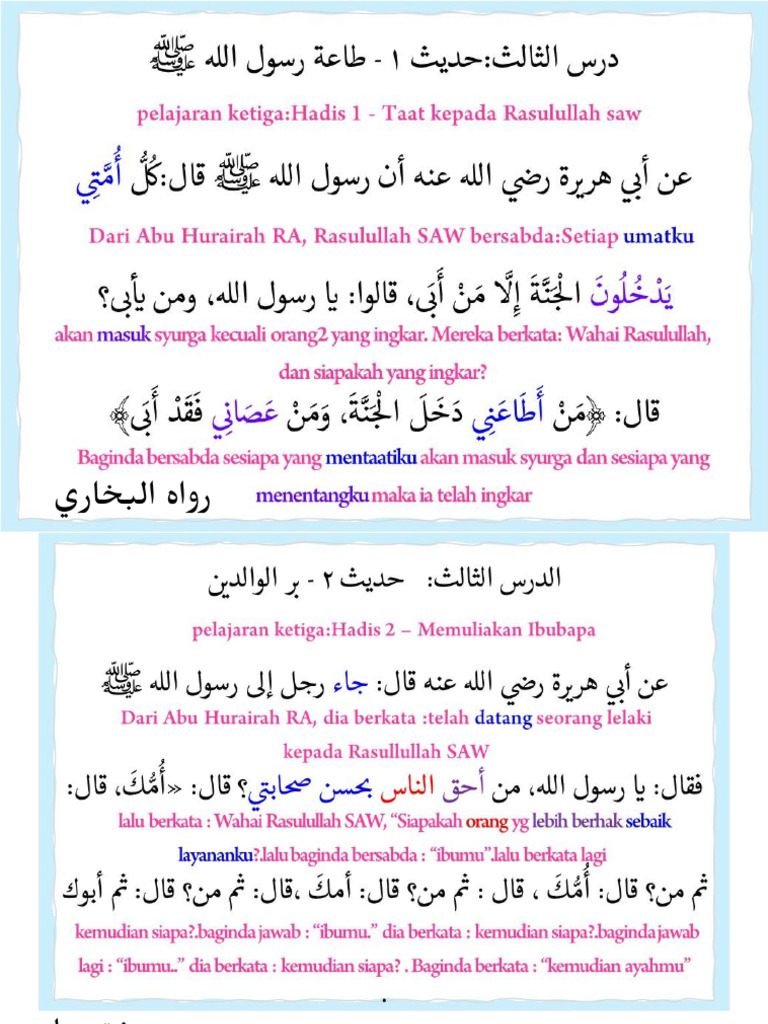 درس الثالث:حديث ١ - طاعة رسول الله ﷺ
pelajaran ketiga:Hadis 1 - Taat kepada Rasulullah saw
عن أبي هريرة رضي الله عنه أن رسول الله ﷺ قال:كُلُّ أُمَّتِي
Dari Abu Hurairah RA, Rasulullah SAW bersabda:Setiap umatku
يَدْخُلُونَ الْجَنَّةَ إِلَّا مَنْ أَبَى، قالوا: يا رسول الله، ومن يأبى؟
akan masuk syurga kecuali orang2 yang ingkar. Mereka berkata: Wahai Rasulullah,
dan siapakah yang ingkar?
قال: ﴿مَنْ أَطَاعَنِي دَخَلَ الْجَنَّةَ، وَمَنْ عَصَانِي فَقَدْ أَبَى﴾
Baginda bersabda sesiapa yang mentaatiku akan masuk syurga dan sesiapa yang
menentangku maka ia telah ingkar
رواه البخاري
الدرس الثالث: حديث ٢ - بر الوالدين
pelajaran ketiga:Hadis 2 – Memuliakan Ibubapa
عن أبي هريرة رضي الله عنه قال: جاء رجل إلى رسول الله ﷺ
Dari Abu Hurairah RA, dia berkata :telah datang seorang lelaki
kepada Rasullullah SAW
فقال: يا رسول الله، من أحق الناس بحسن صحابتي؟ قال: «أُمُّكَ، قال:
lalu berkata : Wahai Rasulullah SAW, “Siapakah orang yg lebih berhak sebaik
layananku?.lalu baginda bersabda : “ibumu”.lalu berkata lagi
ثم من؟ قال: أُمُّكَ ، قال : ثم من؟ قال: أمكَ ،قال: ثم من؟ قال: ثم أبوك
kemudian siapa?.baginda jawab : “ibumu.” dia berkata : kemudian siapa?.baginda jawab
lagi : “ibumu..” dia berkata : kemudian siapa? . Baginda berkata : “kemudian ayahmu”
.